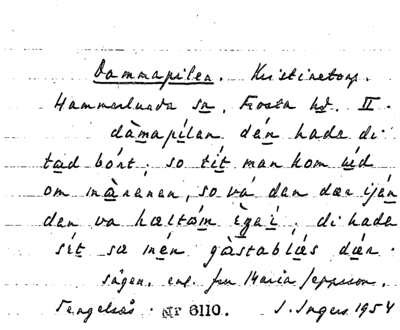 Dammapilen. Kristinetorp.
Hammarlunda sn, Frosta hd. II.
dàmapílan dán hada di
tad bórt; so tít man kom úd
om inàrnanen, so vá dan dær ijén
dan va hæltóm ègaí. di hada
sít sæ mén gàstablás dær.
sägen, enl. fru Maria Jeppsson,
Tengelsås. Nr 6110. I. Ingers 1954